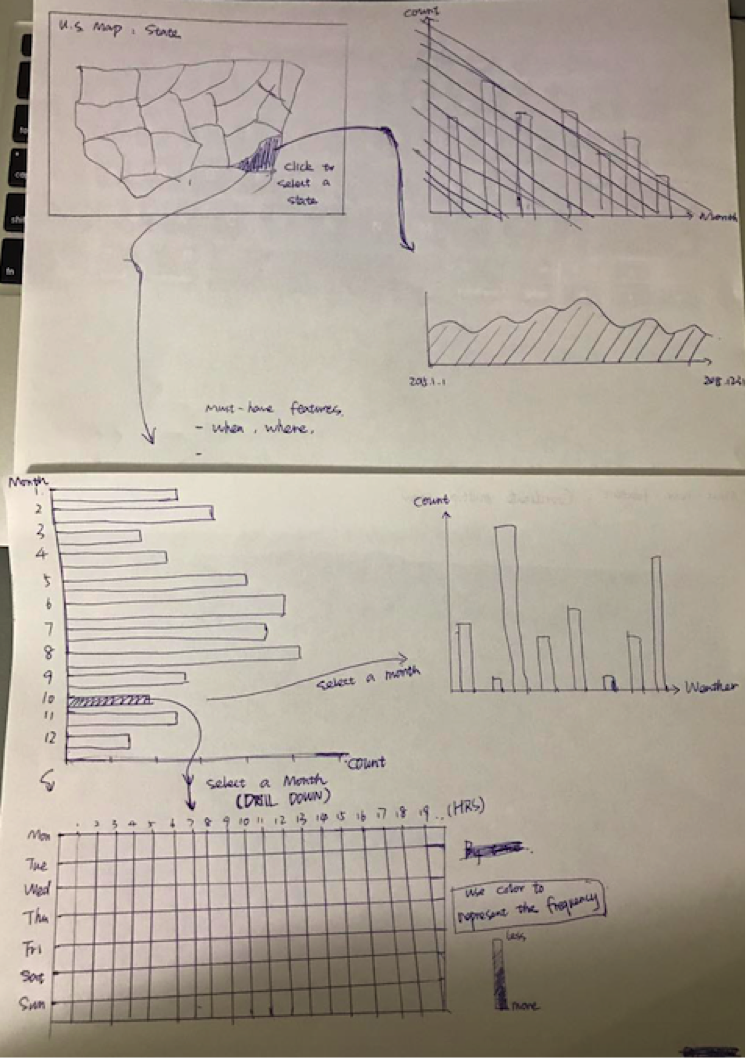 U.S. Map : State
Click to
select a
state
Count
Month
Must-have features.
- When, where.
-
Month
1
2
3
4
5
6
7
8
9
10
11
12
Count
select a month
Count
Weather
Select a Month
(DRILL DOWN)
1 2 3 4 5 6 7 8 9 10 11 12 13 14 15 16 17 18 19 .. (HRS)
Mon
Tue
Wed
Thu
Fri
Sat
Sun
use color to
represent the frequency
less
more
fn